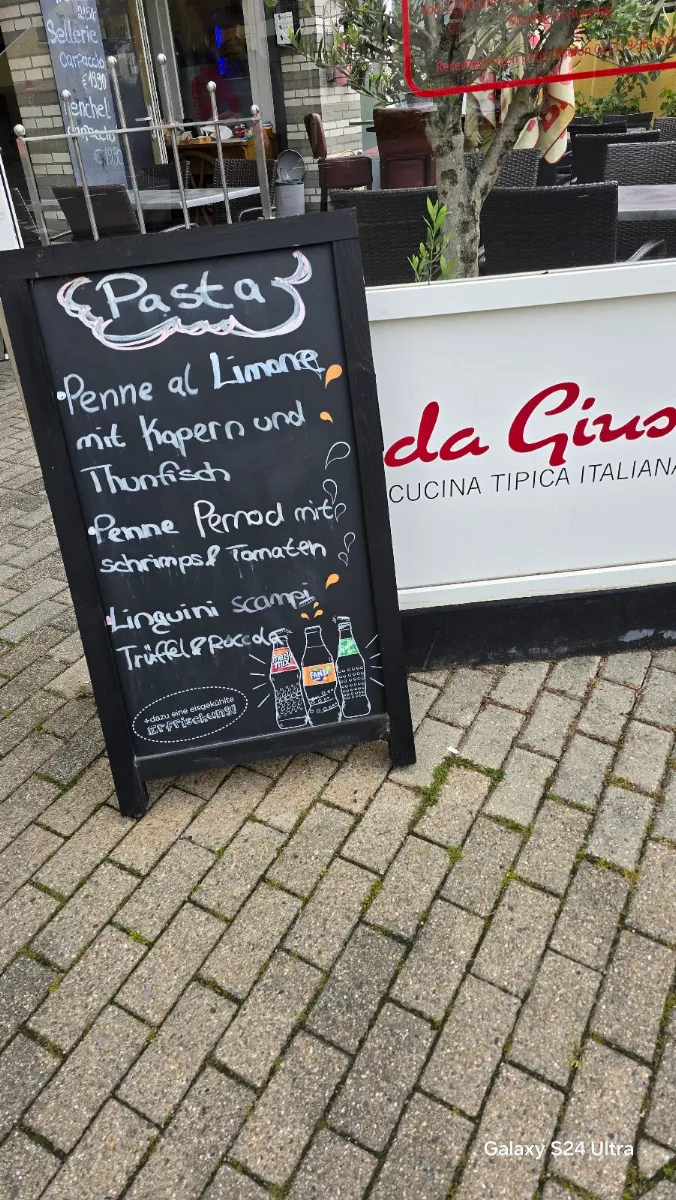 Sellerie
carpaccio
Pasta
Penne al Limone
mit Kapern und
Thunfisch
Penne Pernod mit
schrimps & Tomaten
Linguini scampi
Trüffel & Ruccola
mezzo mix
FANTA
+dazu eine eisgekühlte
Erfrischung!
da Gius
CUCINA TIPICA ITALIANA
Galaxy S24 Ultra